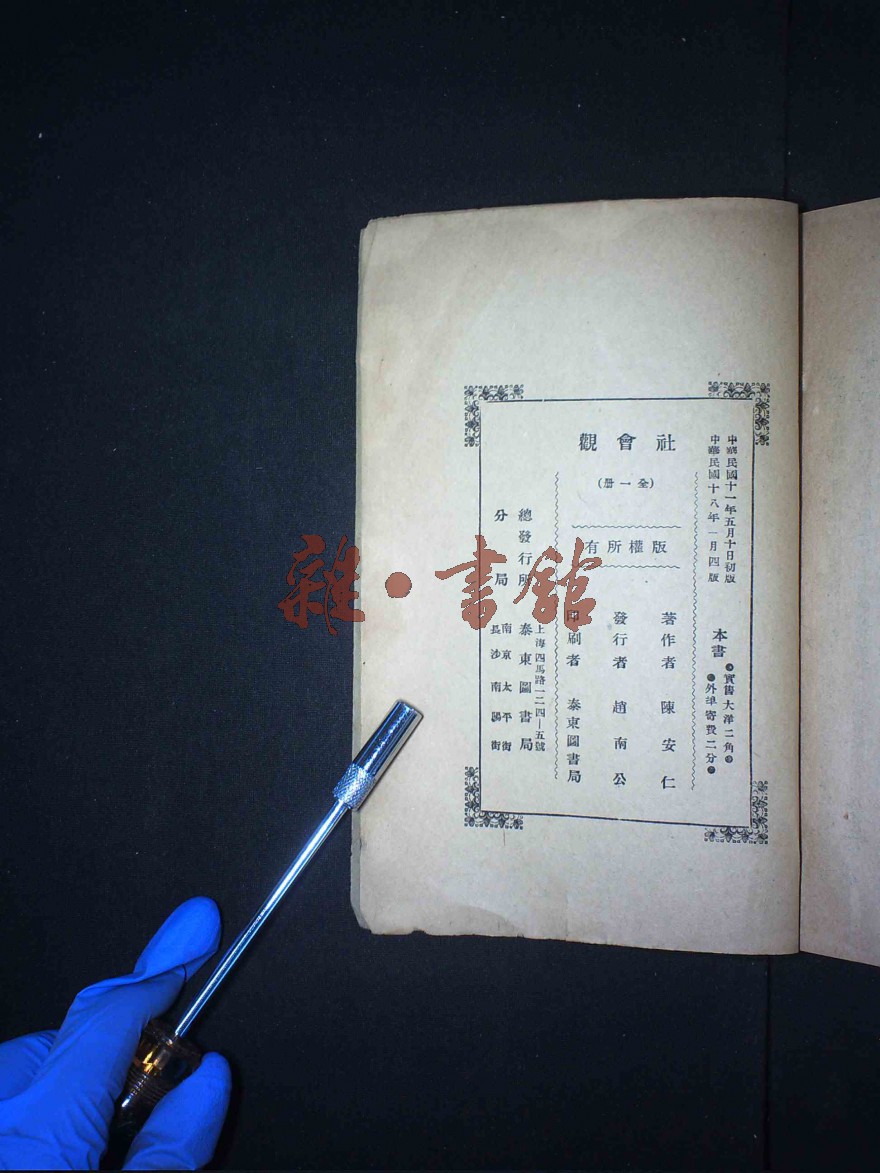 中華民國十一年五月十日初版
中華民國十八年一月四版
本書
實售大洋二角
外埠寄費二分
社會觀
（全一册）
版權所有
著作者 陳安仁
發行者 趙南公
印刷者 泰東圖書局
上海四馬路一二四—五號
總發行所 泰東圖書局
分局
南京太平街
長沙南陽街
雜·書館